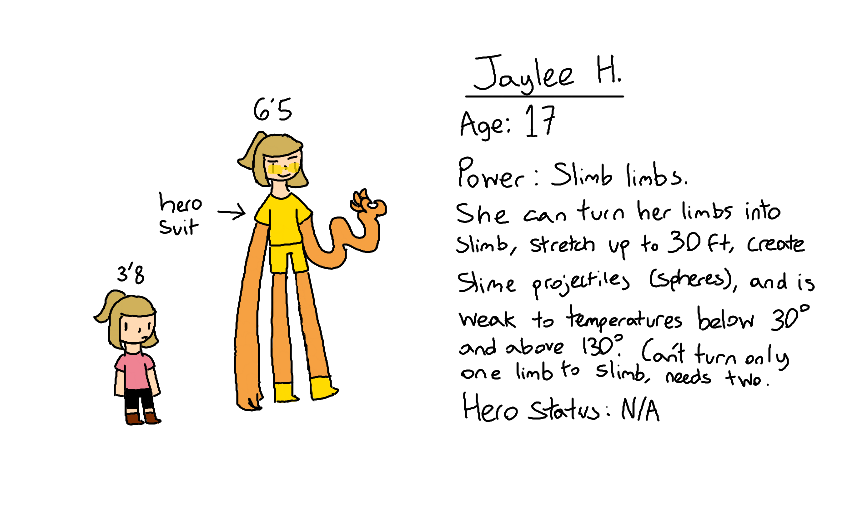 Jaylee H.
6'5
Age: 17
Power: Slimb limbs.
hero
suit
She can turn her limbs into
slimb, stretch up to 30 ft, create
Slime projectiles (spheres), and is
weak to temperatures below 30°
and above 130°. Can't turn only
one limb to slimb, needs two.
Hero Status: N/A
3'8